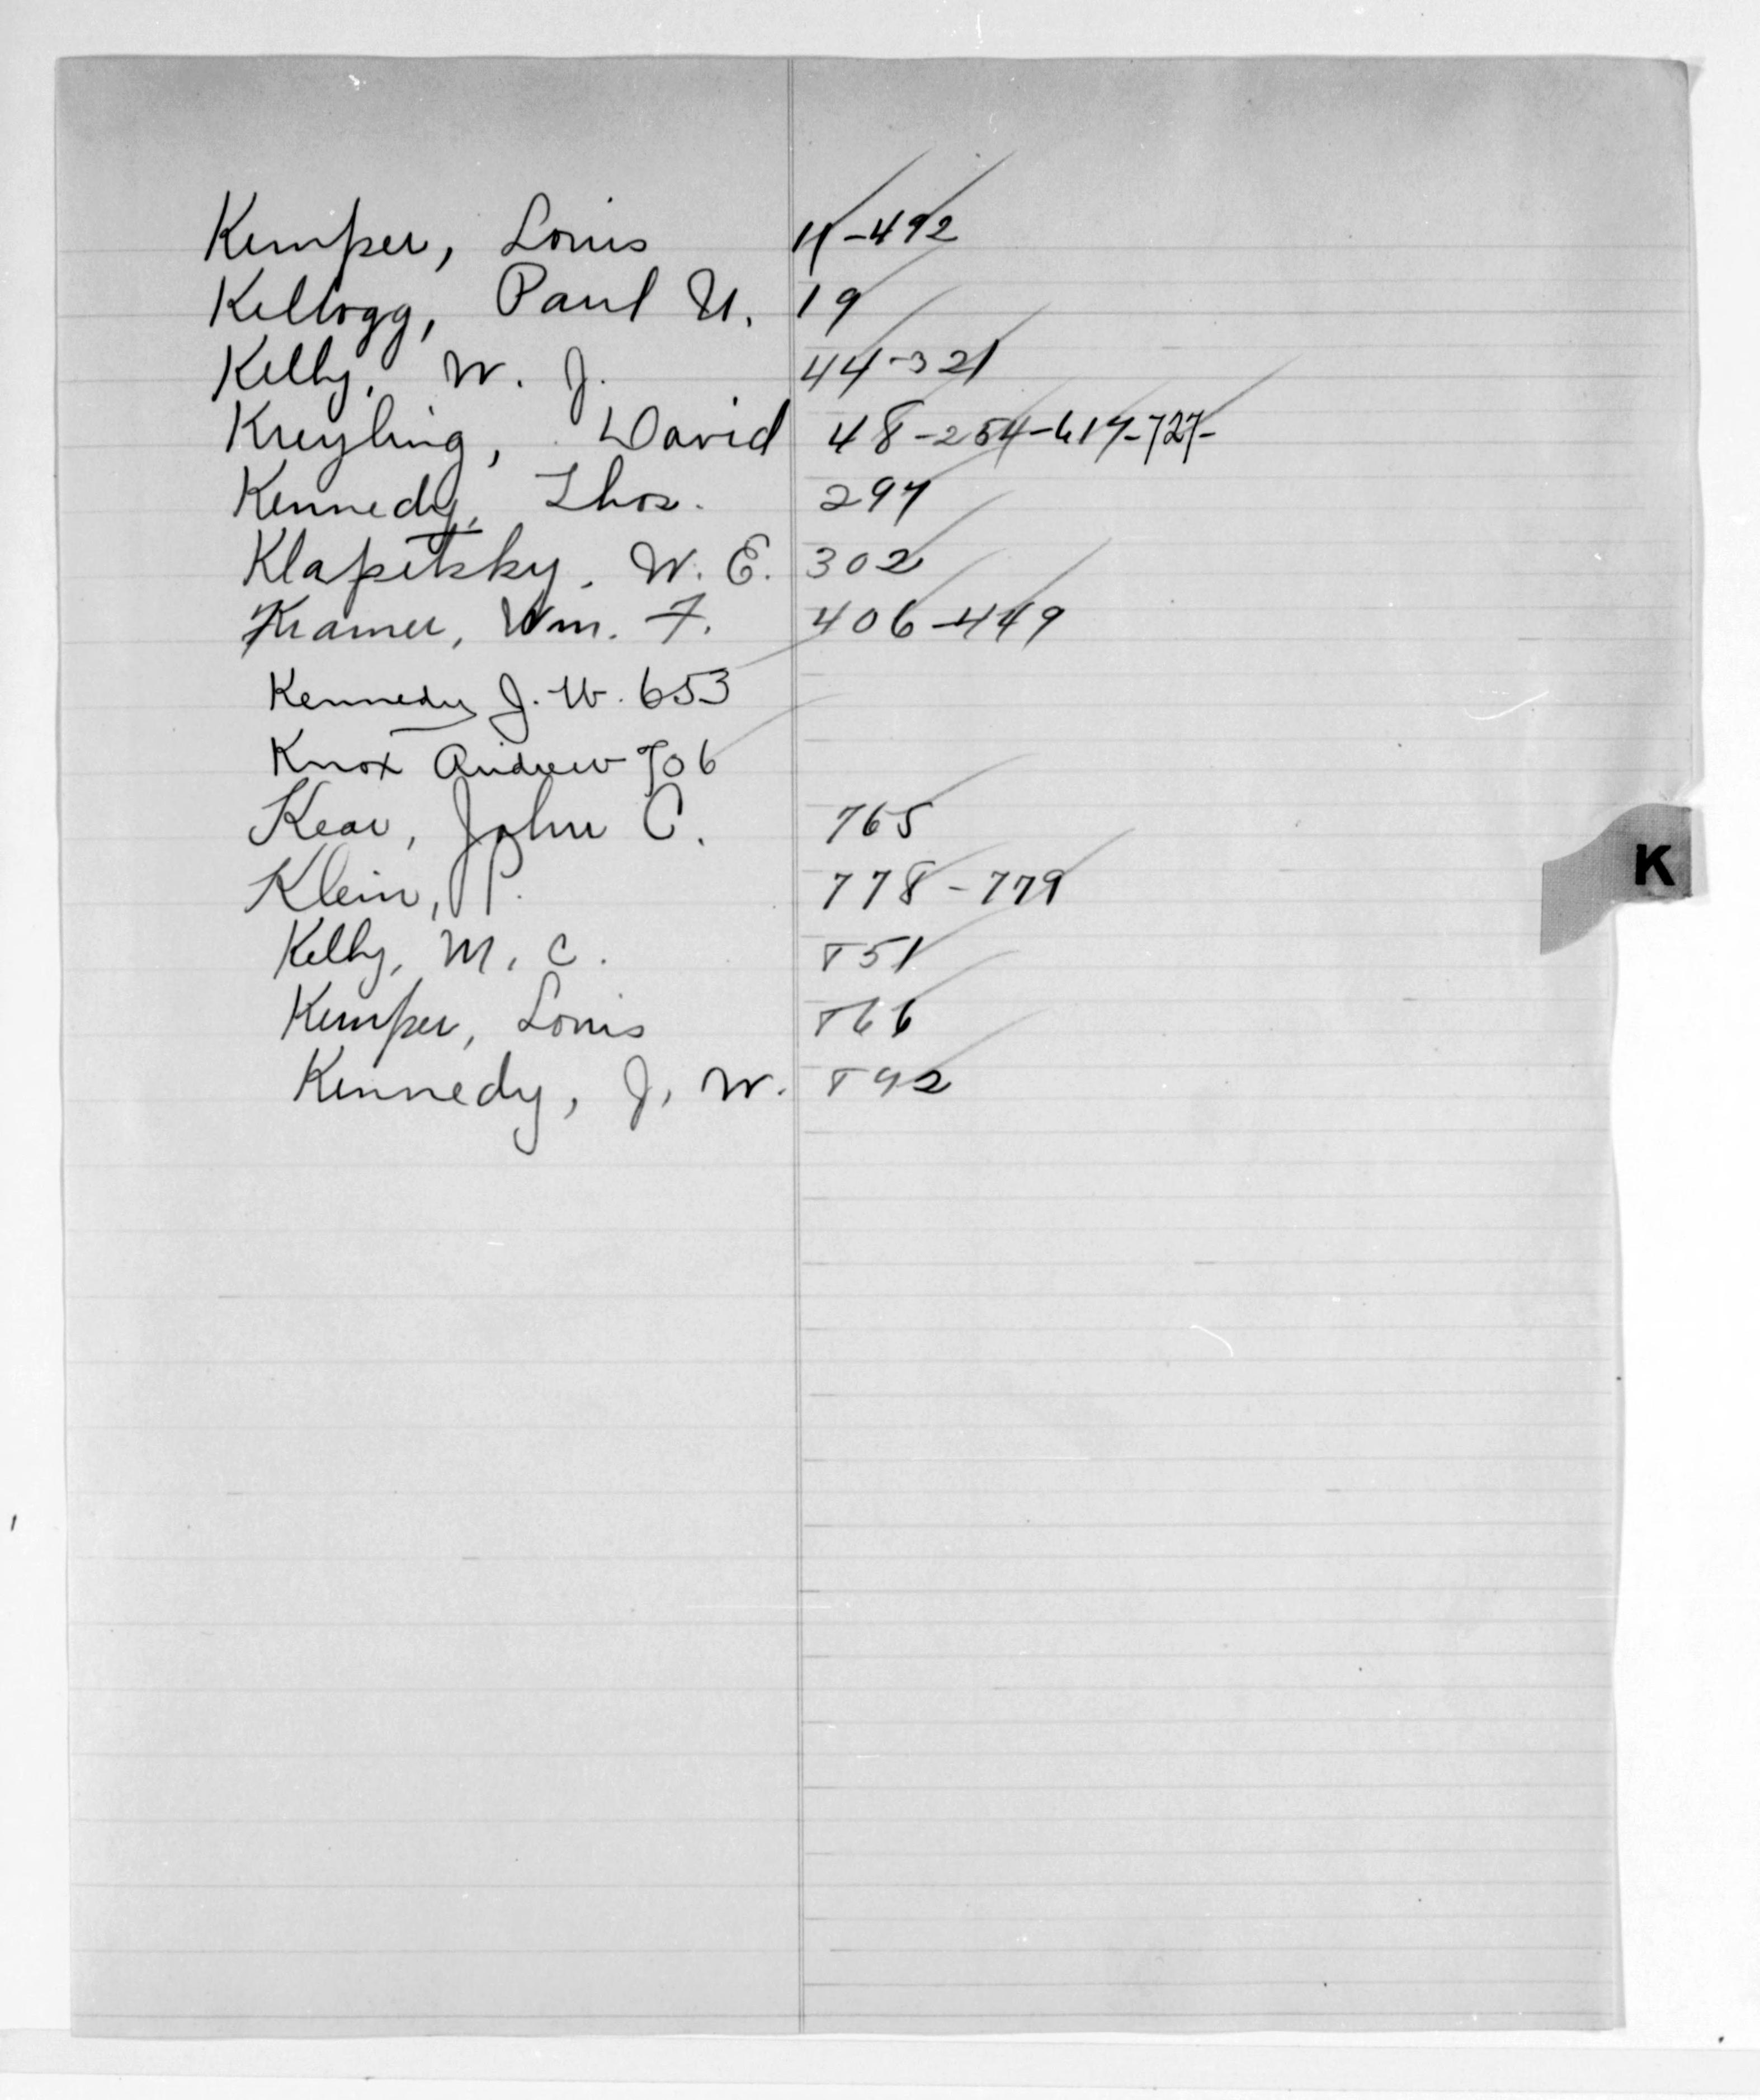 Kemper, Louis 11-492
Kellogg, Paul U. 19
Kelly, W. J. 44-321
Kreyling, David 48-254-617-727-
Kennedy, Thos. 297
Klapetzky, W. E. 302
Kramer, Wm. F. 406-449
Kennedy J. W. 653
Knox Andrew 706
Kear, John C. 765
Klein, P. 778-779
Kelly, M. C. 851
Kemper, Louis 866
Kennedy, J. W. 892
K